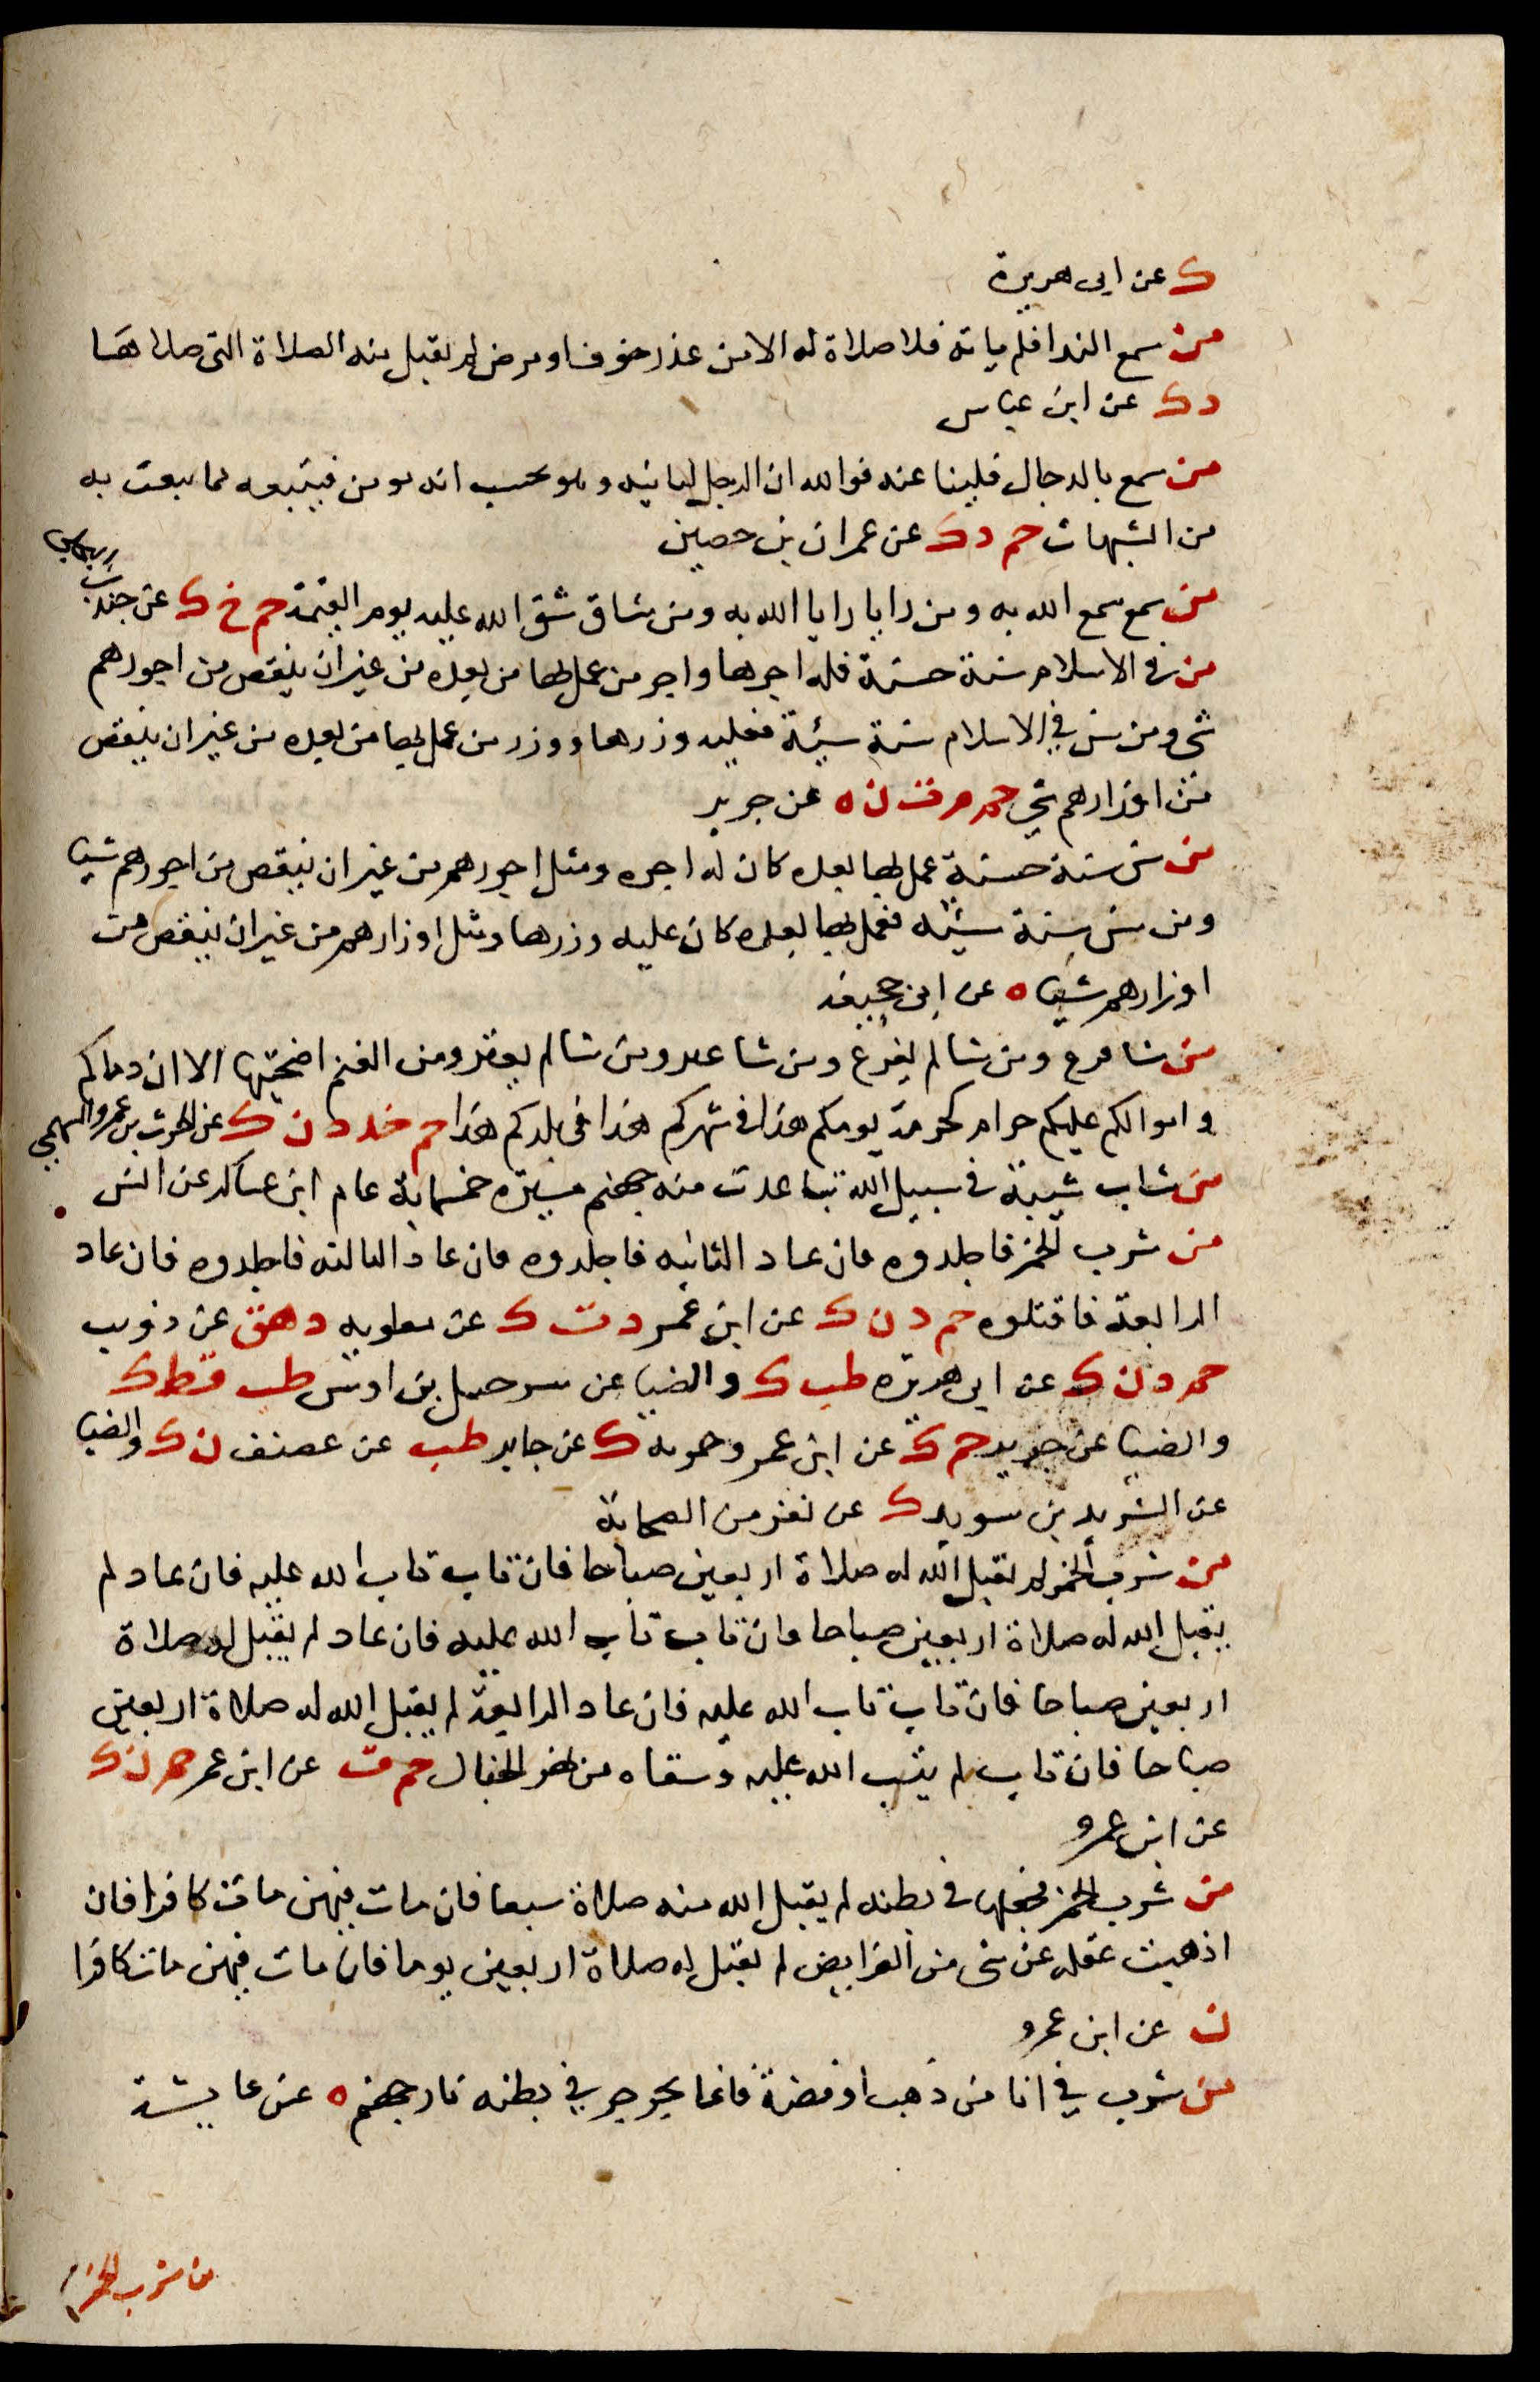 ك عن ابى هريرة
من سمع الندا فلم ياته فلا صلاة له الا من عذر خوف او مرض لم تقبل منه الصلاة التى صلاها
د ك عن ابن عباس
من سمع بالدجال فلينا عنه فوالله ان الرجل لياتيه وهو يحسب انه مومن فيتبعه مما يبعث به
من الشبهات حم د ك عن عمران بن حصين
من سمع سمع الله به ومن رايا رايا الله به ومن شاق شق الله عليه يوم القيمة حم خ ك عن جندب
من في الاسلام سنة حسنة فله اجرها واجر من عمل بها من بعده من غير ان ينقص من اجورهم
شى ومن سن في الاسلام سنة سيئة فعليه وزرها ووزر من عمل بها من بعده من غير ان ينقص
من اوزارهم شي حم م ت ن ه عن جرير
من سن سنة حسنة عمل بها بعده كان له اجره ومثل اجورهم من غير ان ينقص من اجورهم شيا
ومن سن سنة سيئه فعمل بها بعده كان عليه وزرها ومثل اوزارهم من غير ان ينقص من
اوزارهم شيا ه عن ابى جحيفه
من شا فرع ومن شا لم يفرع ومن شا عتر ومن شا لم يعتر ومن الغنم اضحيتها الا ان دماكم
واموالكم عليكم حرام كحرمة يومكم هذا في شهركم هذا في بلدكم هذا حم خد د ن ك عن الحرث بن عمرو السهمي
من شاب شيبة في سبيل الله تباعدت منه جهنم مسيرة خمسماية عام ابن عساكر عن انس
من شرب الخمر فاجلدوه فان عاد الثانيه فاجلدوه فان عاد الثالثه فاجلدوه فان عاد
الرابعة فاقتلوه حم د ن ك عن ابن عمر د ت ك عن معاويه د هق عن ذويب
حم د ن ك عن ابى هريره طب ك والضيا عن شرحبيل بن اوس طب قط ك
والضيا عن جرير حم ك عن ابن عمرو حم ه ك عن جابر طب عن غضيف ن ك والضيا
عن الشريد بن سويد ك عن نفر من الصحابة
من شرب الخمر لم تقبل الله له صلاة اربعين صباحا فان تاب تاب الله عليه فان عاد لم
يقبل الله له صلاة اربعين صباحا وان تاب تاب الله عليه فان عاد لم يقبل له صلاة
اربعين صباحا فان تاب تاب الله عليه فان عاد الرابعة لم يقبل الله له صلاة اربعين
صباحا فان تاب لم يتب الله عليه وسقاه من نهر الخبال حم ت عن ابن عمر حم ن ك
عن ابن عمرو
من شرب الخمر فجعلها في بطنه لم يقبل الله منه صلاة سبعا فان مات فيهن مات كافرا فان
اذهبت عقله عن شى من الفرايض لم تقبل له صلاة اربعين يوما فان مات فيهن مات كافرا
ن عن ابن عمرو
من شرب في انا من ذهب او فضة فانما يجرجر في بطنه نار جهنم ه عن عايشة
من شرب الخمر